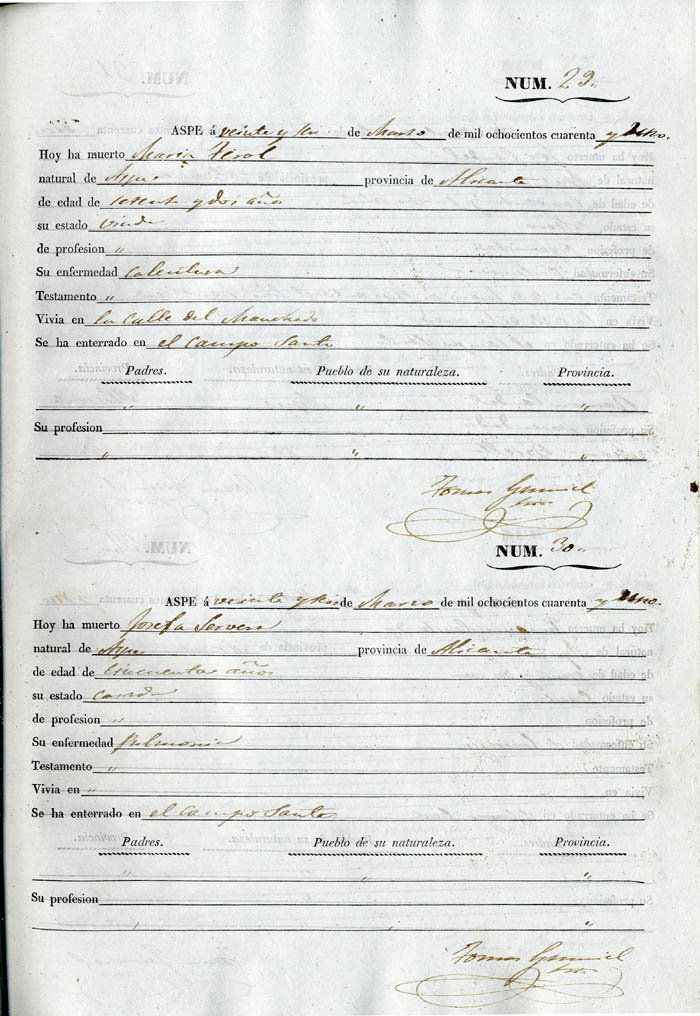 NUM. 29.
ASPE á veinte y de Marzo de mil ochocientos cuarenta y Uno.
Hoy ha muerto Maria
natural de Aspe provincia de Alicante
de edad de sesenta y dos años
su estado viuda
de profesion "
Su enfermedad calentura
Testamento "
Vivia en la calle del
Se ha enterrado en el campo Santo
Padres. Pueblo de su naturaleza. Provincia.
" " "
Su profesion
" " "
Tomas
NUM. 30.
ASPE á veinte y de Marzo de mil ochocientos cuarenta y Uno.
Hoy ha muerto Josefa Servera
natural de Aspe provincia de Alicante
de edad de cincuenta años
su estado casada
de profesion "
Su enfermedad Pulmonia
Testamento "
Vivia en "
Se ha enterrado en el campo Santo
Padres. Pueblo de su naturaleza. Provincia.
" " "
Su profesion
" " "
Tomas